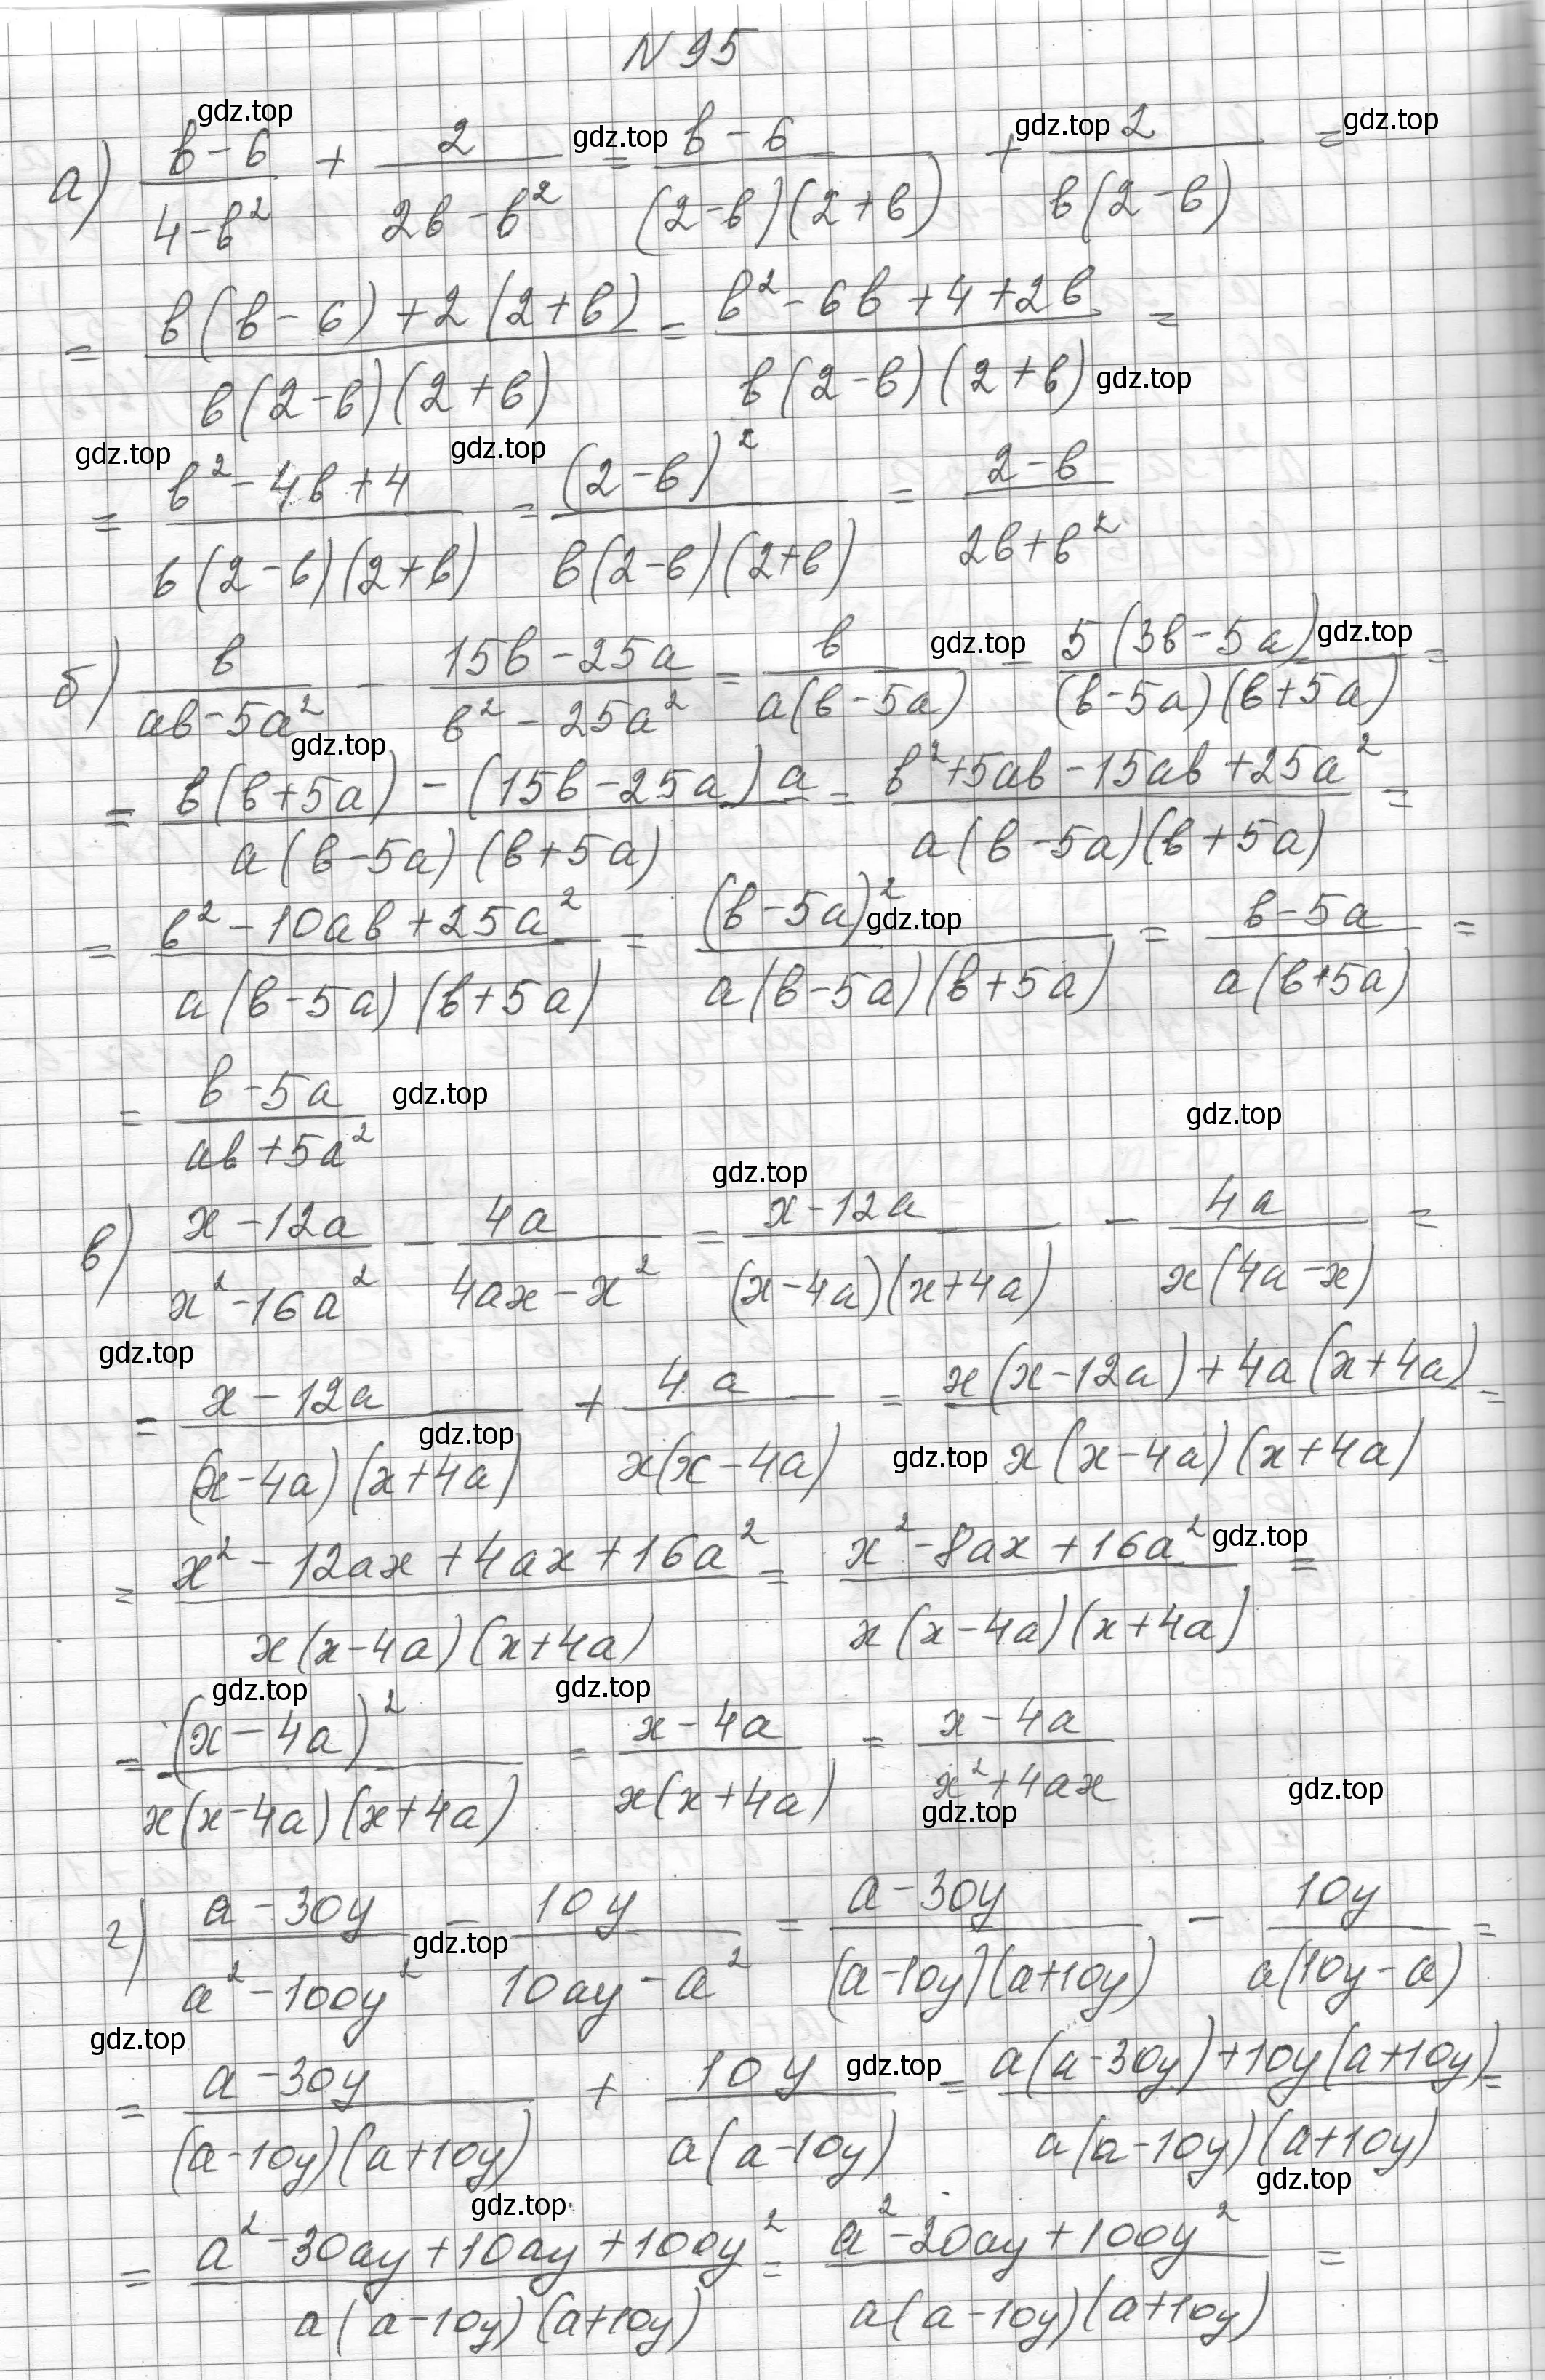 N 95
gdz.top
а) (b-6)/(4-b²) + 2/(2b-b²) = (b-6)/((2-b)(2+b)) + 2/(b(2-b)) =
gdz.top gdz.top gdz.top
= (b(b-6)+2(2+b))/(b(2-b)(2+b)) = (b²-6b+4+2b)/(b(2-b)(2+b)) =
gdz.top
gdz.top gdz.top
= (b²-4b+4)/(b(2-b)(2+b)) = (2-b)²/(b(2-b)(2+b)) = (2-b)/(2b+b²)
б) b/(ab-5a²) - (15b-25a)/(b²-25a²) = b/(a(b-5a)) - 5(3b-5a)/((b-5a)(b+5a)) =
gdz.top gdz.top gdz.top
= (b(b+5a)-(15b-25a)a)/(a(b-5a)(b+5a)) = (b²+5ab-15ab+25a²)/(a(b-5a)(b+5a)) =
= (b²-10ab+25a²)/(a(b-5a)(b+5a)) = (b-5a)²/(a(b-5a)(b+5a)) = (b-5a)/(a(b+5a)) =
gdz.top
= (b-5a)/(ab+5a²)
gdz.top gdz.top
gdz.top
в) (x-12a)/(x²-16a²) - 4a/(4ax-x²) = (x-12a)/((x-4a)(x+4a)) - 4a/(x(4a-x)) =
gdz.top
= (x-12a)/((x-4a)(x+4a)) + 4a/(x(x-4a)) = (x(x-12a)+4a(x+4a))/(x(x-4a)(x+4a)) =
gdz.top gdz.top
= (x²-12ax+4ax+16a²)/(x(x-4a)(x+4a)) = (x²-8ax+16a²)/(x(x-4a)(x+4a)) =
gdz.top
gdz.top gdz.top
= (x-4a)²/(x(x-4a)(x+4a)) = (x-4a)/(x(x+4a)) = (x-4a)/(x²+4ax)
gdz.top gdz.top
г) (a-30y)/(a²-100y²) - 10y/(10ay-a²) = (a-30y)/((a-10y)(a+10y)) - 10y/(a(10y-a)) =
gdz.top
gdz.top gdz.top
= (a-30y)/((a-10y)(a+10y)) + 10y/(a(a-10y)) = (a(a-30y)+10y(a+10y))/(a(a-10y)(a+10y)) =
gdz.top gdz.top
= (a²-30ay+10ay+100y²)/(a(a-10y)(a+10y)) = (a²-20ay+100y²)/(a(a-10y)(a+10y)) =